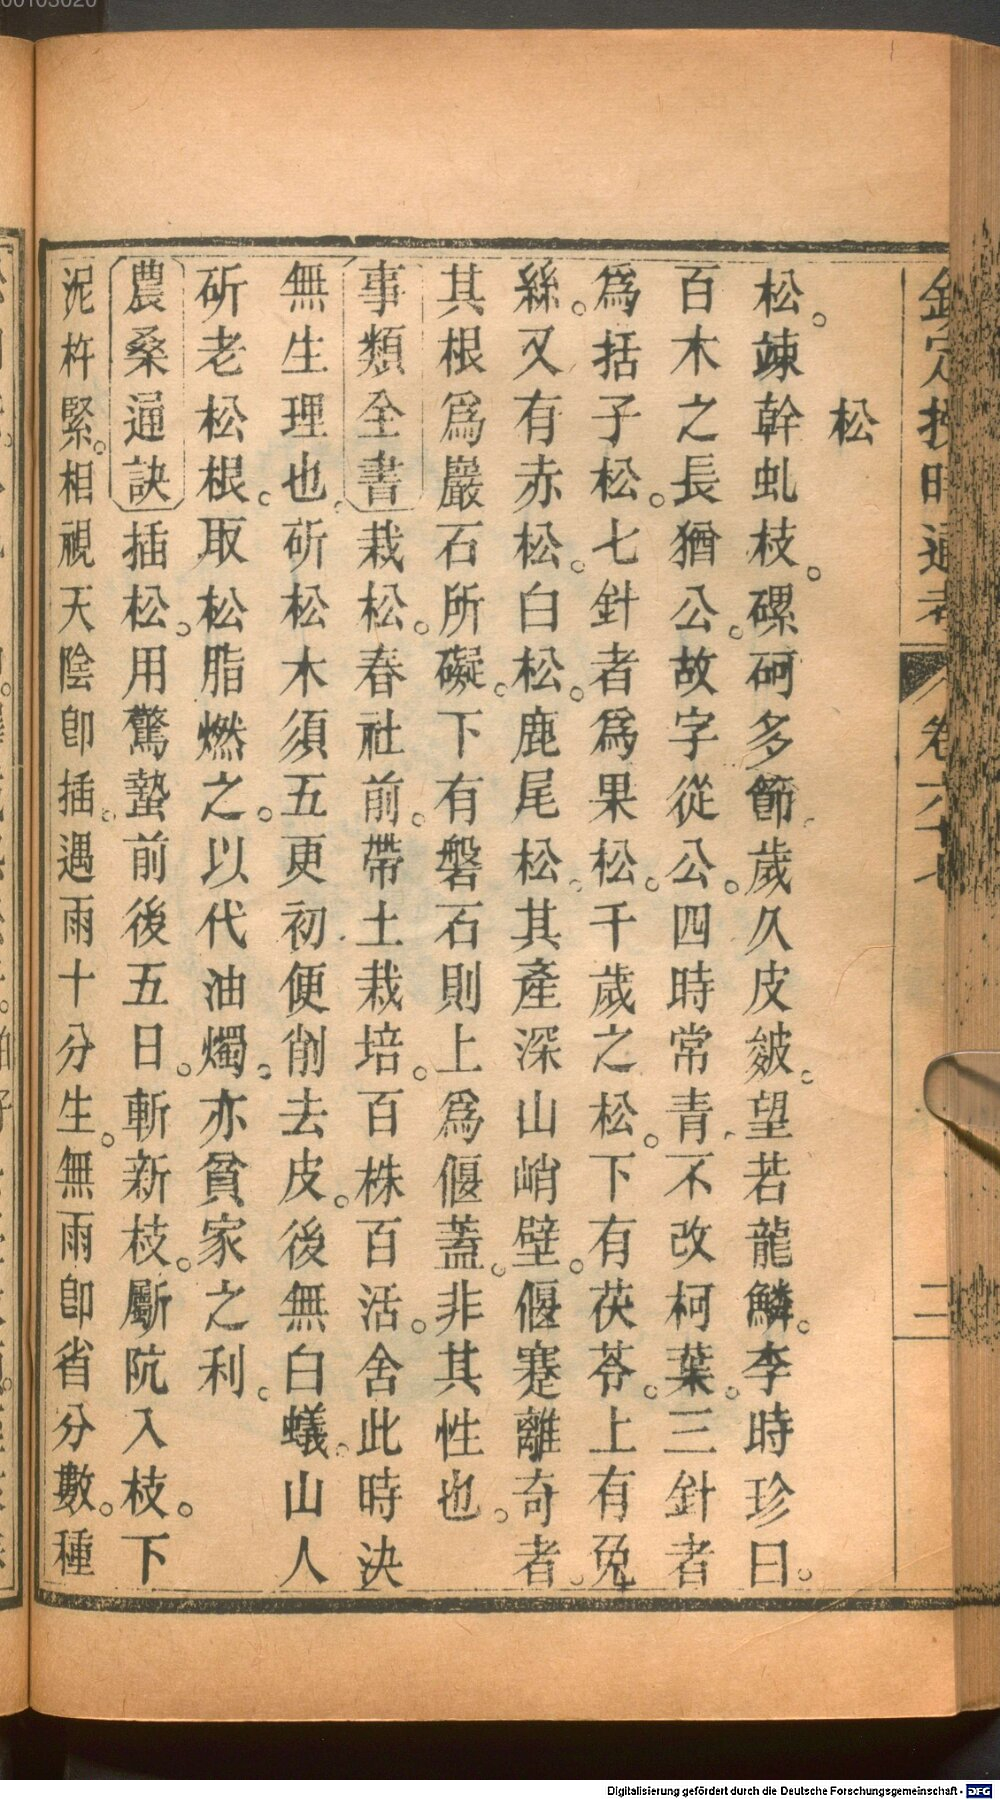 欽定授時通考 卷六十七 二
松
松。竦幹虬枝。磥砢多節。歲久皮皴。望若龍鱗。李時珍曰。
百木之長猶公。故字從公。四時常青。不改柯葉。三針者
爲括子松。七針者爲果松。千歲之松。下有茯苓。上有兔
絲。又有赤松。白松。鹿尾松。其產深山峭壁。偃蹇離奇者。
其根爲巖石所礙。下有磐石則上爲偃蓋。非其性也。
事類全書栽松。春社前。帶土栽培。百株百活。舍此時決
無生理也。斫松木須五更初便削去皮。後無白蟻。山人
斫老松根。取松脂燃之。以代油燭。亦貧家之利。
農桑通訣插松。用驚蟄前後五日。斬新枝。斸阬入枝。下
泥杵緊。相視天陰卽插。遇雨十分生。無雨卽省分數。種
Digitalisierung gefördert durch die Deutsche Forschungsgemeinschaft - DFG